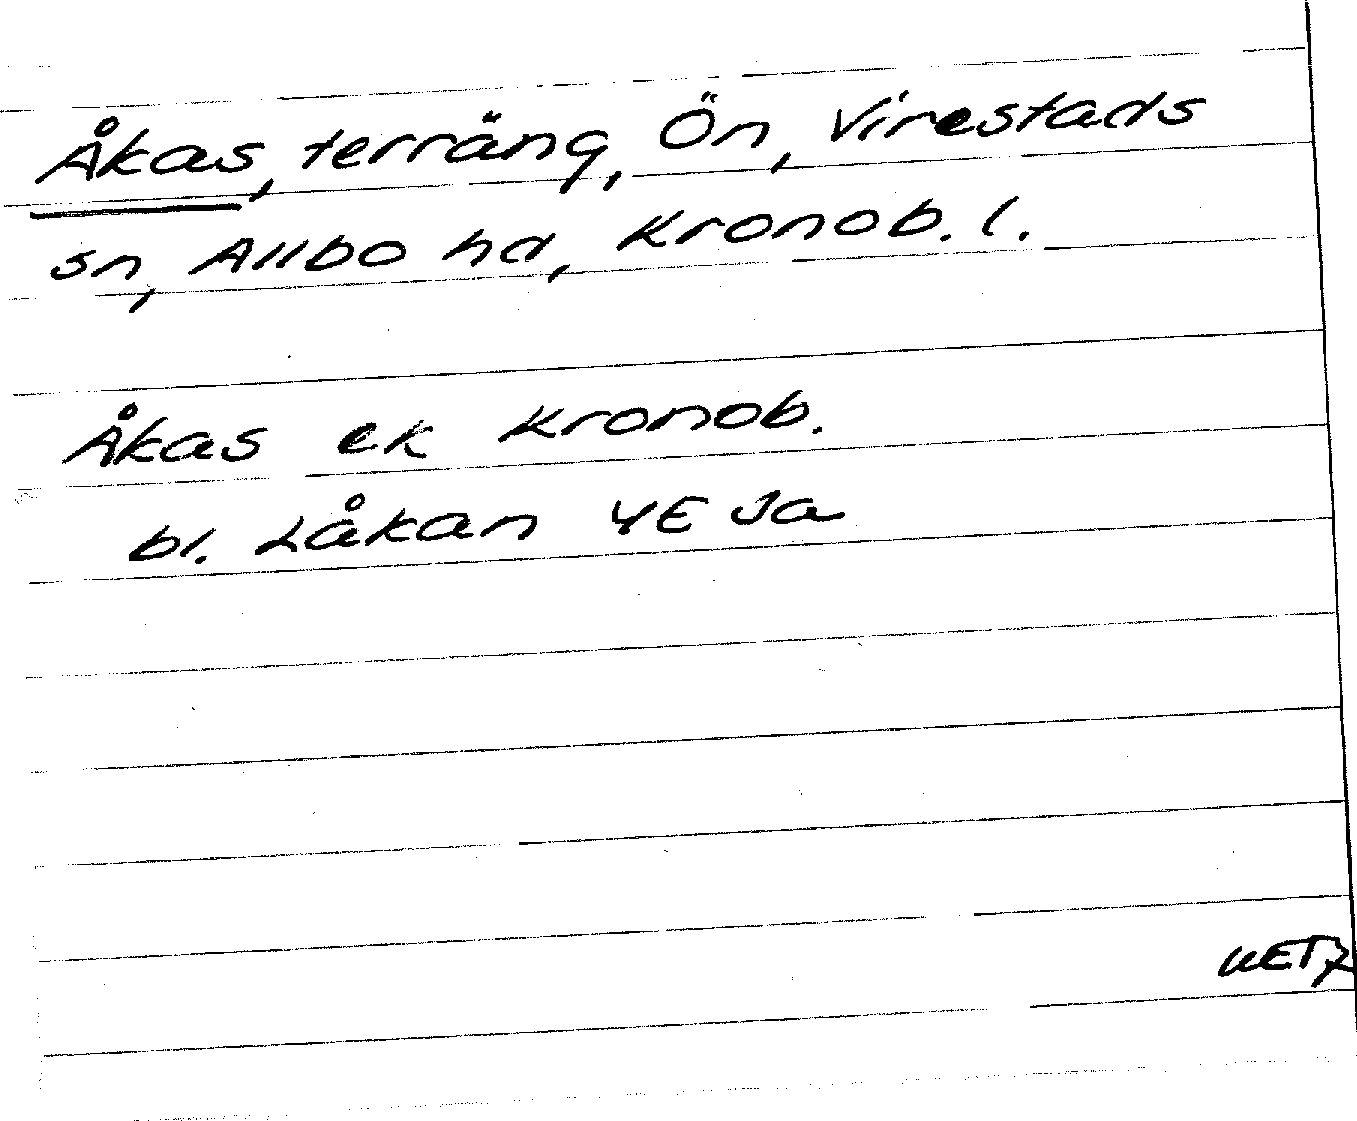 Åkas, terräng, Ön, Virestads
sn, Allbo hd, Kronob. l.
Åkas ek Kronob.
bl. Låkan 4E Ja